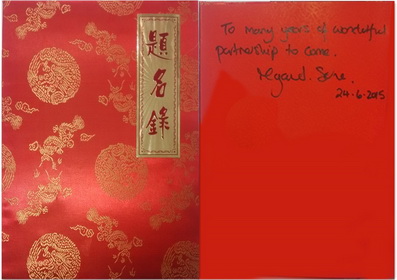 題
名
錄
To many years of wonderful
partnership to come.
24-6-2015